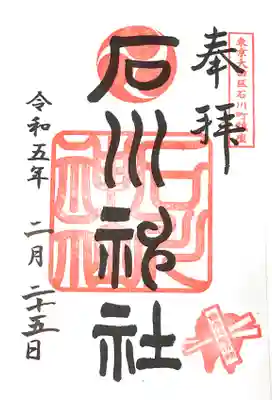 奉拝
東京大田区石川町鎮座
石川神社
石川神社
令和五年 二月 二十五日